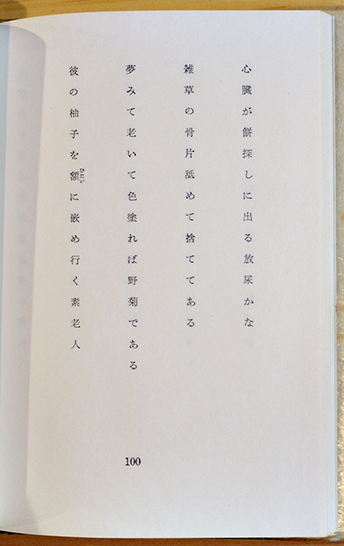 心臓が餅探しに出る放尿かな
雑草の骨片舐めて捨ててある
夢みて老いて色塗れば野菊である
彼の柚子を額に嵌め行く素老人
100